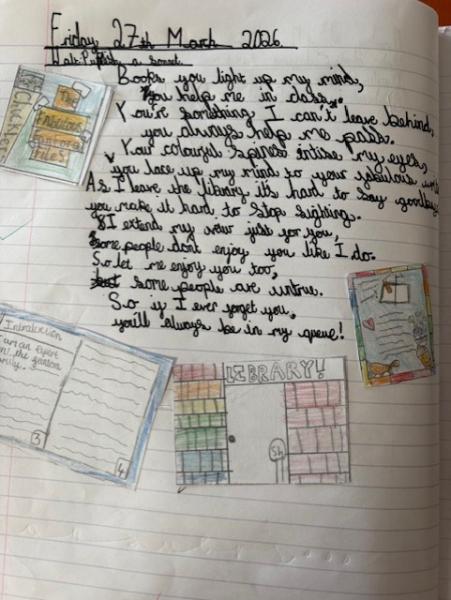 Friday 27th March 2026
Walt: Publish a sonnet
Books you light up my mind,
you help me in class.
You're something I can't leave behind,
you always help me pass.
Your colourful spines intise my eyes,
you lose up my mind to your fabulous
As I leave the library it's hard to say goodbye
you make it hard to stop sighing.
I extend my vow just for you,
Some people dont enjoy you like I do.
So let me enjoy you too,
some people are untrue.
So if I ever forget you,
you'll always be in my queue!
The
Introduction
I am an expert
on the
family.
3
4
LIBRARY!
Sh